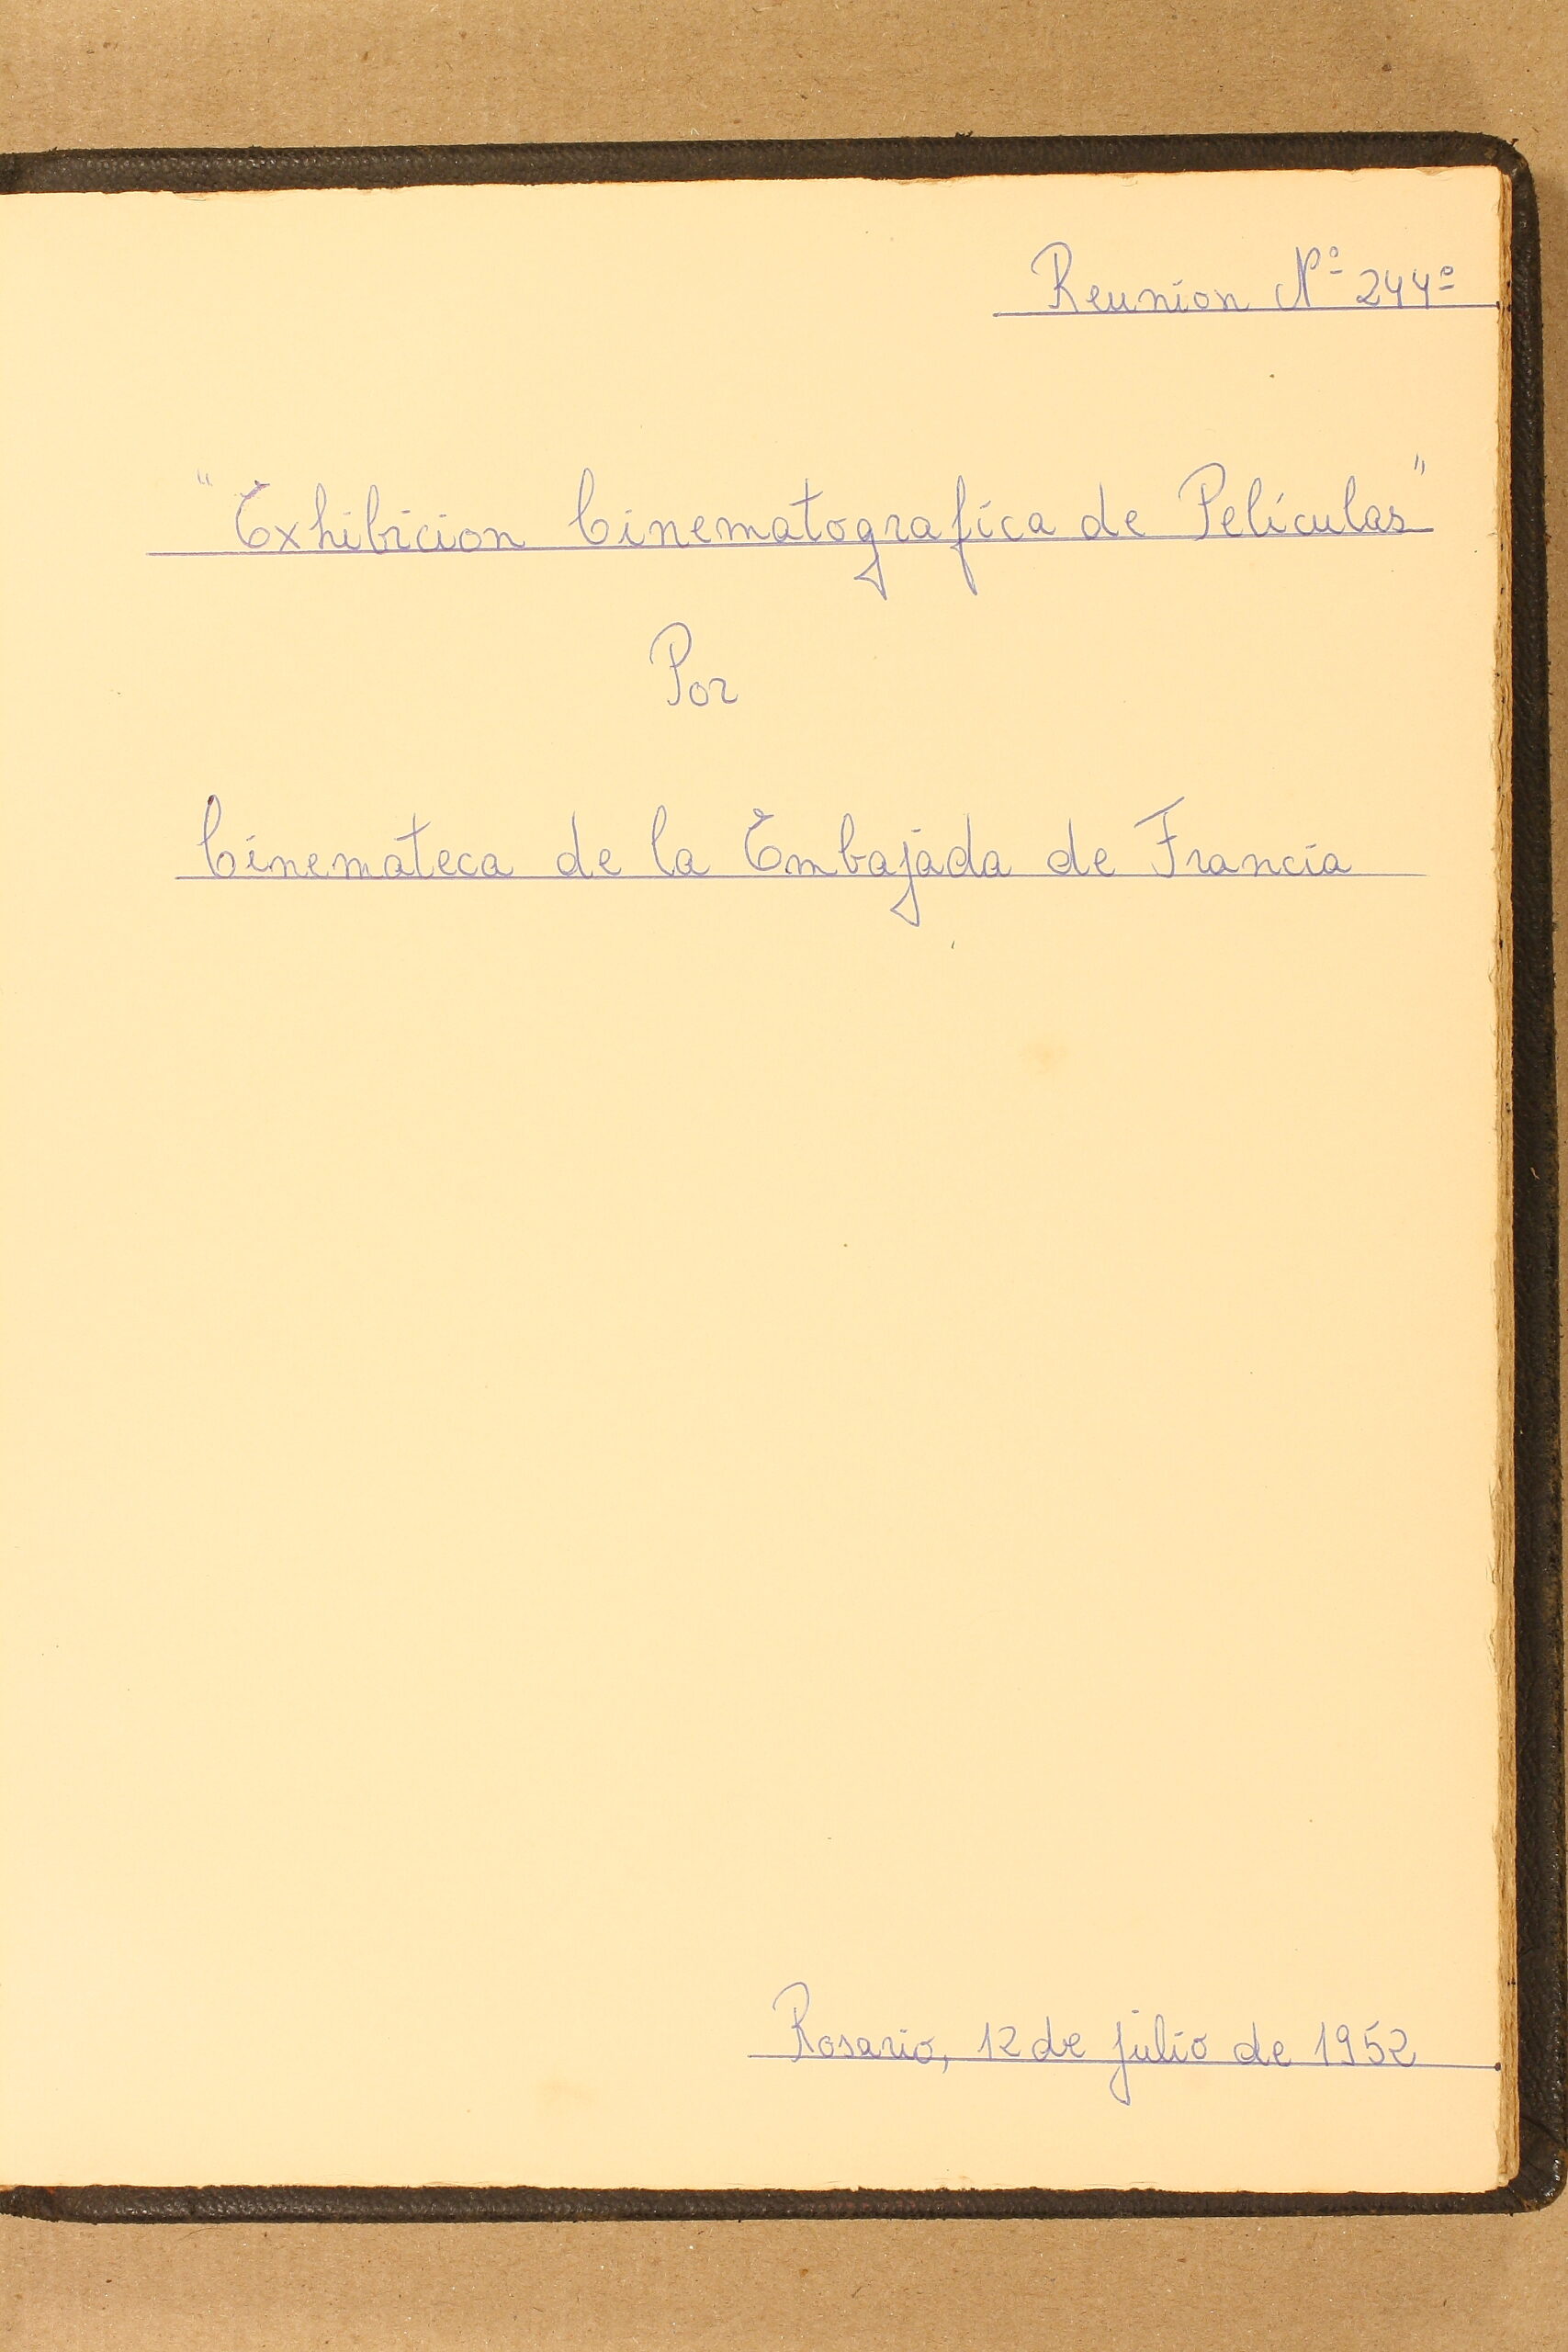 Reunion Nº 244º
"Exhibicion Cinematografica de Películas"
Por
Cinemateca de la Embajada de Francia
Rosario, 12 de julio de 1952